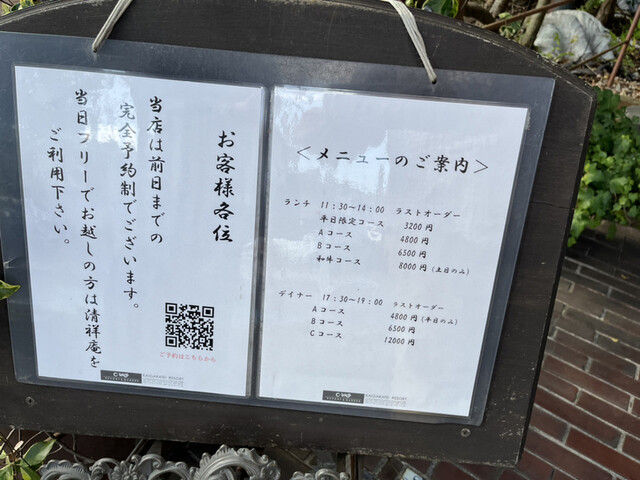 お客様各位
当店は前日までの
完全予約制でございます。
当日フリーでお越しの方は清祥庵を
ご利用下さい。
ご予約はこちらから
＜メニューのご案内＞
ランチ 11：30～14：00 ラストオーダー
平日限定コース 3200円
Aコース 4800円
Bコース 6500円
和牛コース 8000円（土日のみ）
デイナー 17：30～19：00 ラストオーダー
Aコース 4800円（平日のみ）
Bコース 6500円
Cコース 12000円